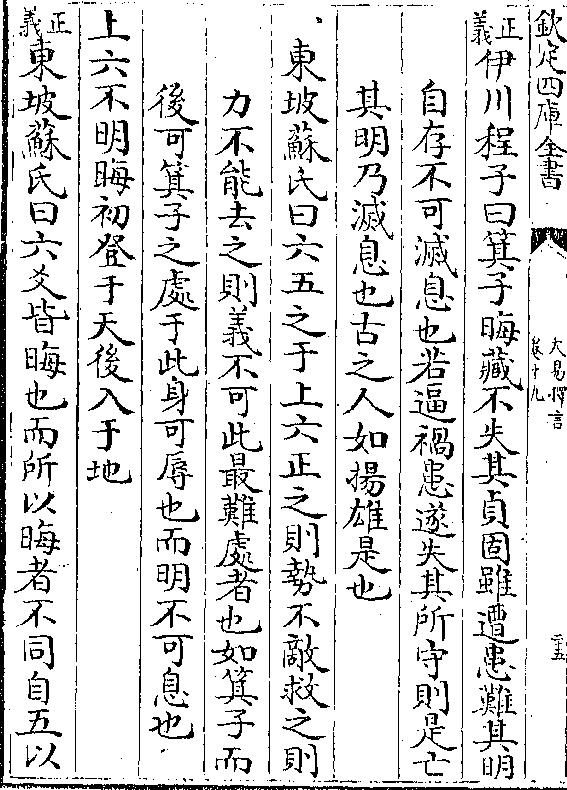 欽定四庫全書
大易擇言
卷十九
二五
正義伊川程子曰箕子晦藏不失其貞固雖遭患難其明
自存不可滅息也若逼禍患遂失其所守則是亡
其明乃滅息也古之人如揚雄是也
、東坡蘇氏曰六五之于上六正之則勢不敵救之則
力不能去之則義不可此最難處者也如箕子而
後可箕子之處于此身可辱也而明不可息也
上六不明晦初登于天後入于地
正義東坡蘇氏曰六爻皆晦也而所以晦者不同自五以